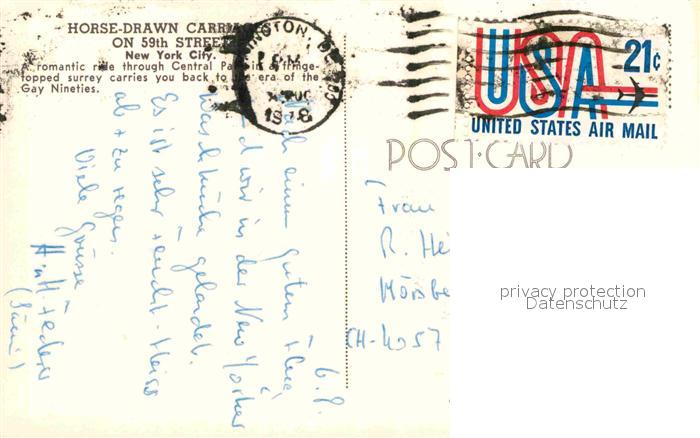 HORSE-DRAWN CARRIA
ON 59th STREET
New York City.
A romantic ride through Central Park in a fringe-
topped surrey carries you back to the era of the
Gay Nineties.
21¢
USA
UNITED STATES AIR MAIL
POST-CARD
6.8.
Nach einem guten Flug
sind wir in der New Yorker
Waschküche gelandet.
Es ist sehr feucht-heiss
ab + zu regen.
Viele Grüsse
Frau
CH-4057
privacy protection
Datenschutz